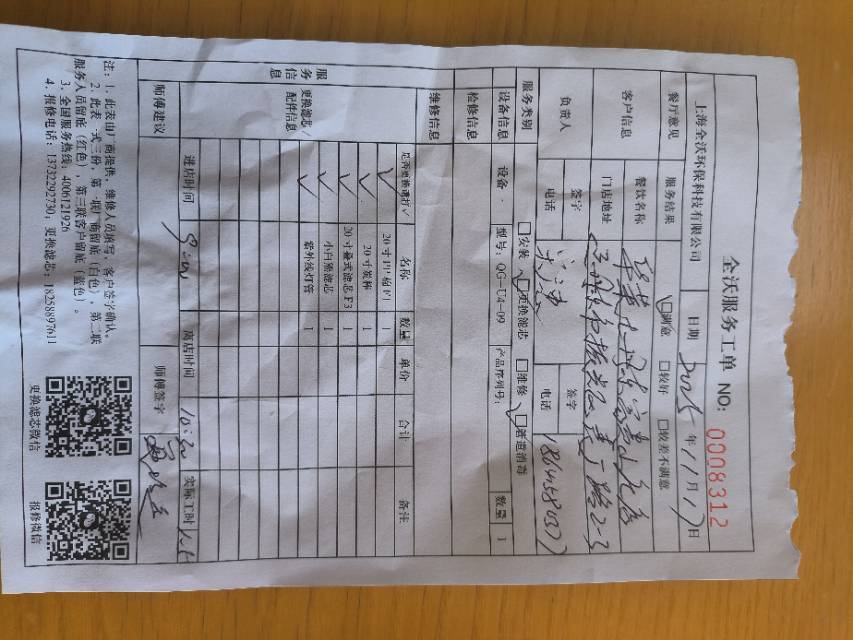 全沃服务工单 NO: 0008312
上海全沃环保科技有限公司 日期 2025年11月17日
餐厅意见 服务结果 ☑满意 □较好 □较差不满意
客户信息 餐饮名称
门店地址
负责人 签字 签字
电话 电话
服务类别 □安装 ☑更换滤芯 □维修 ☑管道消毒
设备信息 设备 型号：QG-U4-09 产品序列号： 数量 1
检修信息
维修信息
服务信息 更换滤芯/配件信息 是否更换请打✓ 名称 数量 单价 合计 备注
✓ 20寸PP棉F1 1
✓ 20寸炭棒 1
✓ 20寸叠式滤芯F3 1
✓ 小白熊滤芯 1
✓ 紫外线灯管 1
进店时间 离店时间 实际工时
师傅建议 师傅签字
注：1. 此表由厂商提供，维修人员填写，客户签字确认。
2. 此表一式三份，第一联厂商留底（白色），第二联
服务人员留底（红色），第三联客户留底（蓝色）。
3. 全国服务热线：4006121926
4. 报修电话：13732292730；更换滤芯：18258897611
更换滤芯微信 报修微信